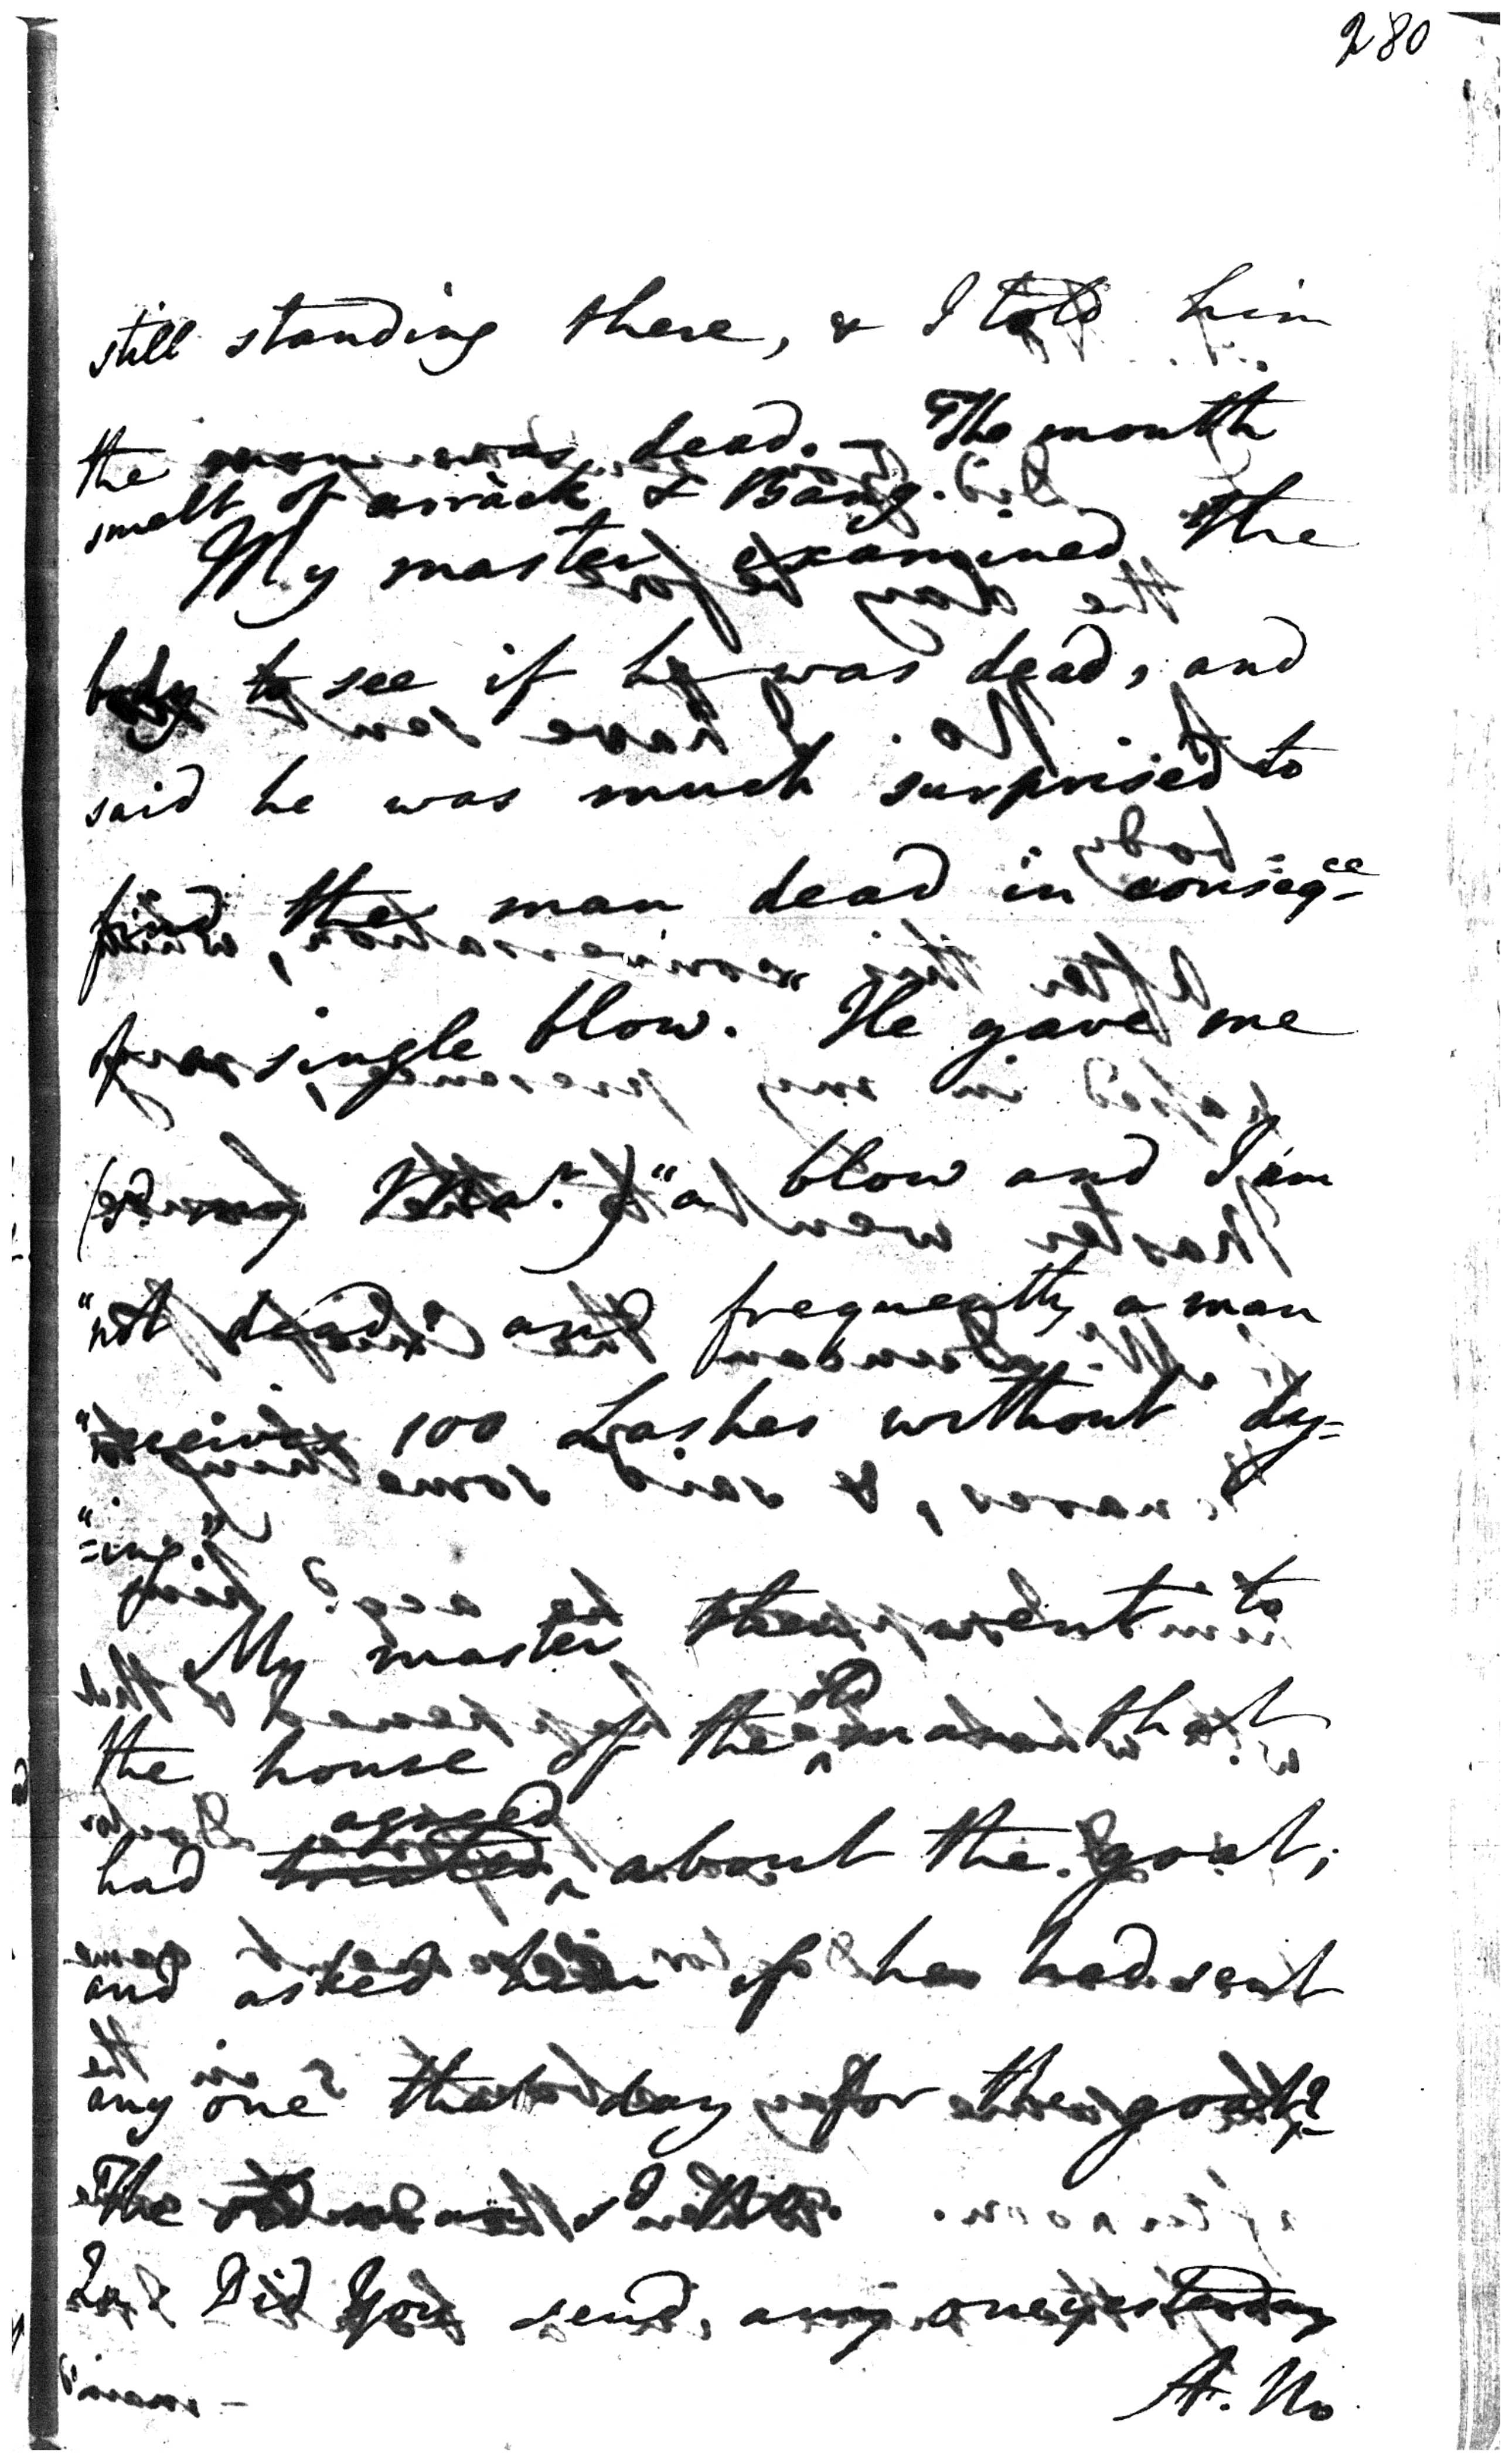 280
still standing there, & I told him
the man was dead. – The mouth
smelt of arrack & Bang.
My master examined the
body to see if he was dead, and
said he was much surprised to
find the man dead in conseq=ce
of a single blow. He gave me
(sd. my Mr.) "a blow and I am
"not dead: and frequently a man
"receives 100 Lashes without dy=
"=ing."
My master then went to
the house of the old man that
had treated agreed about the goat,
and asked him if he had sent
any one that day for the goat?
The old man said No.
Q. Did you send any one yesterday
A. No